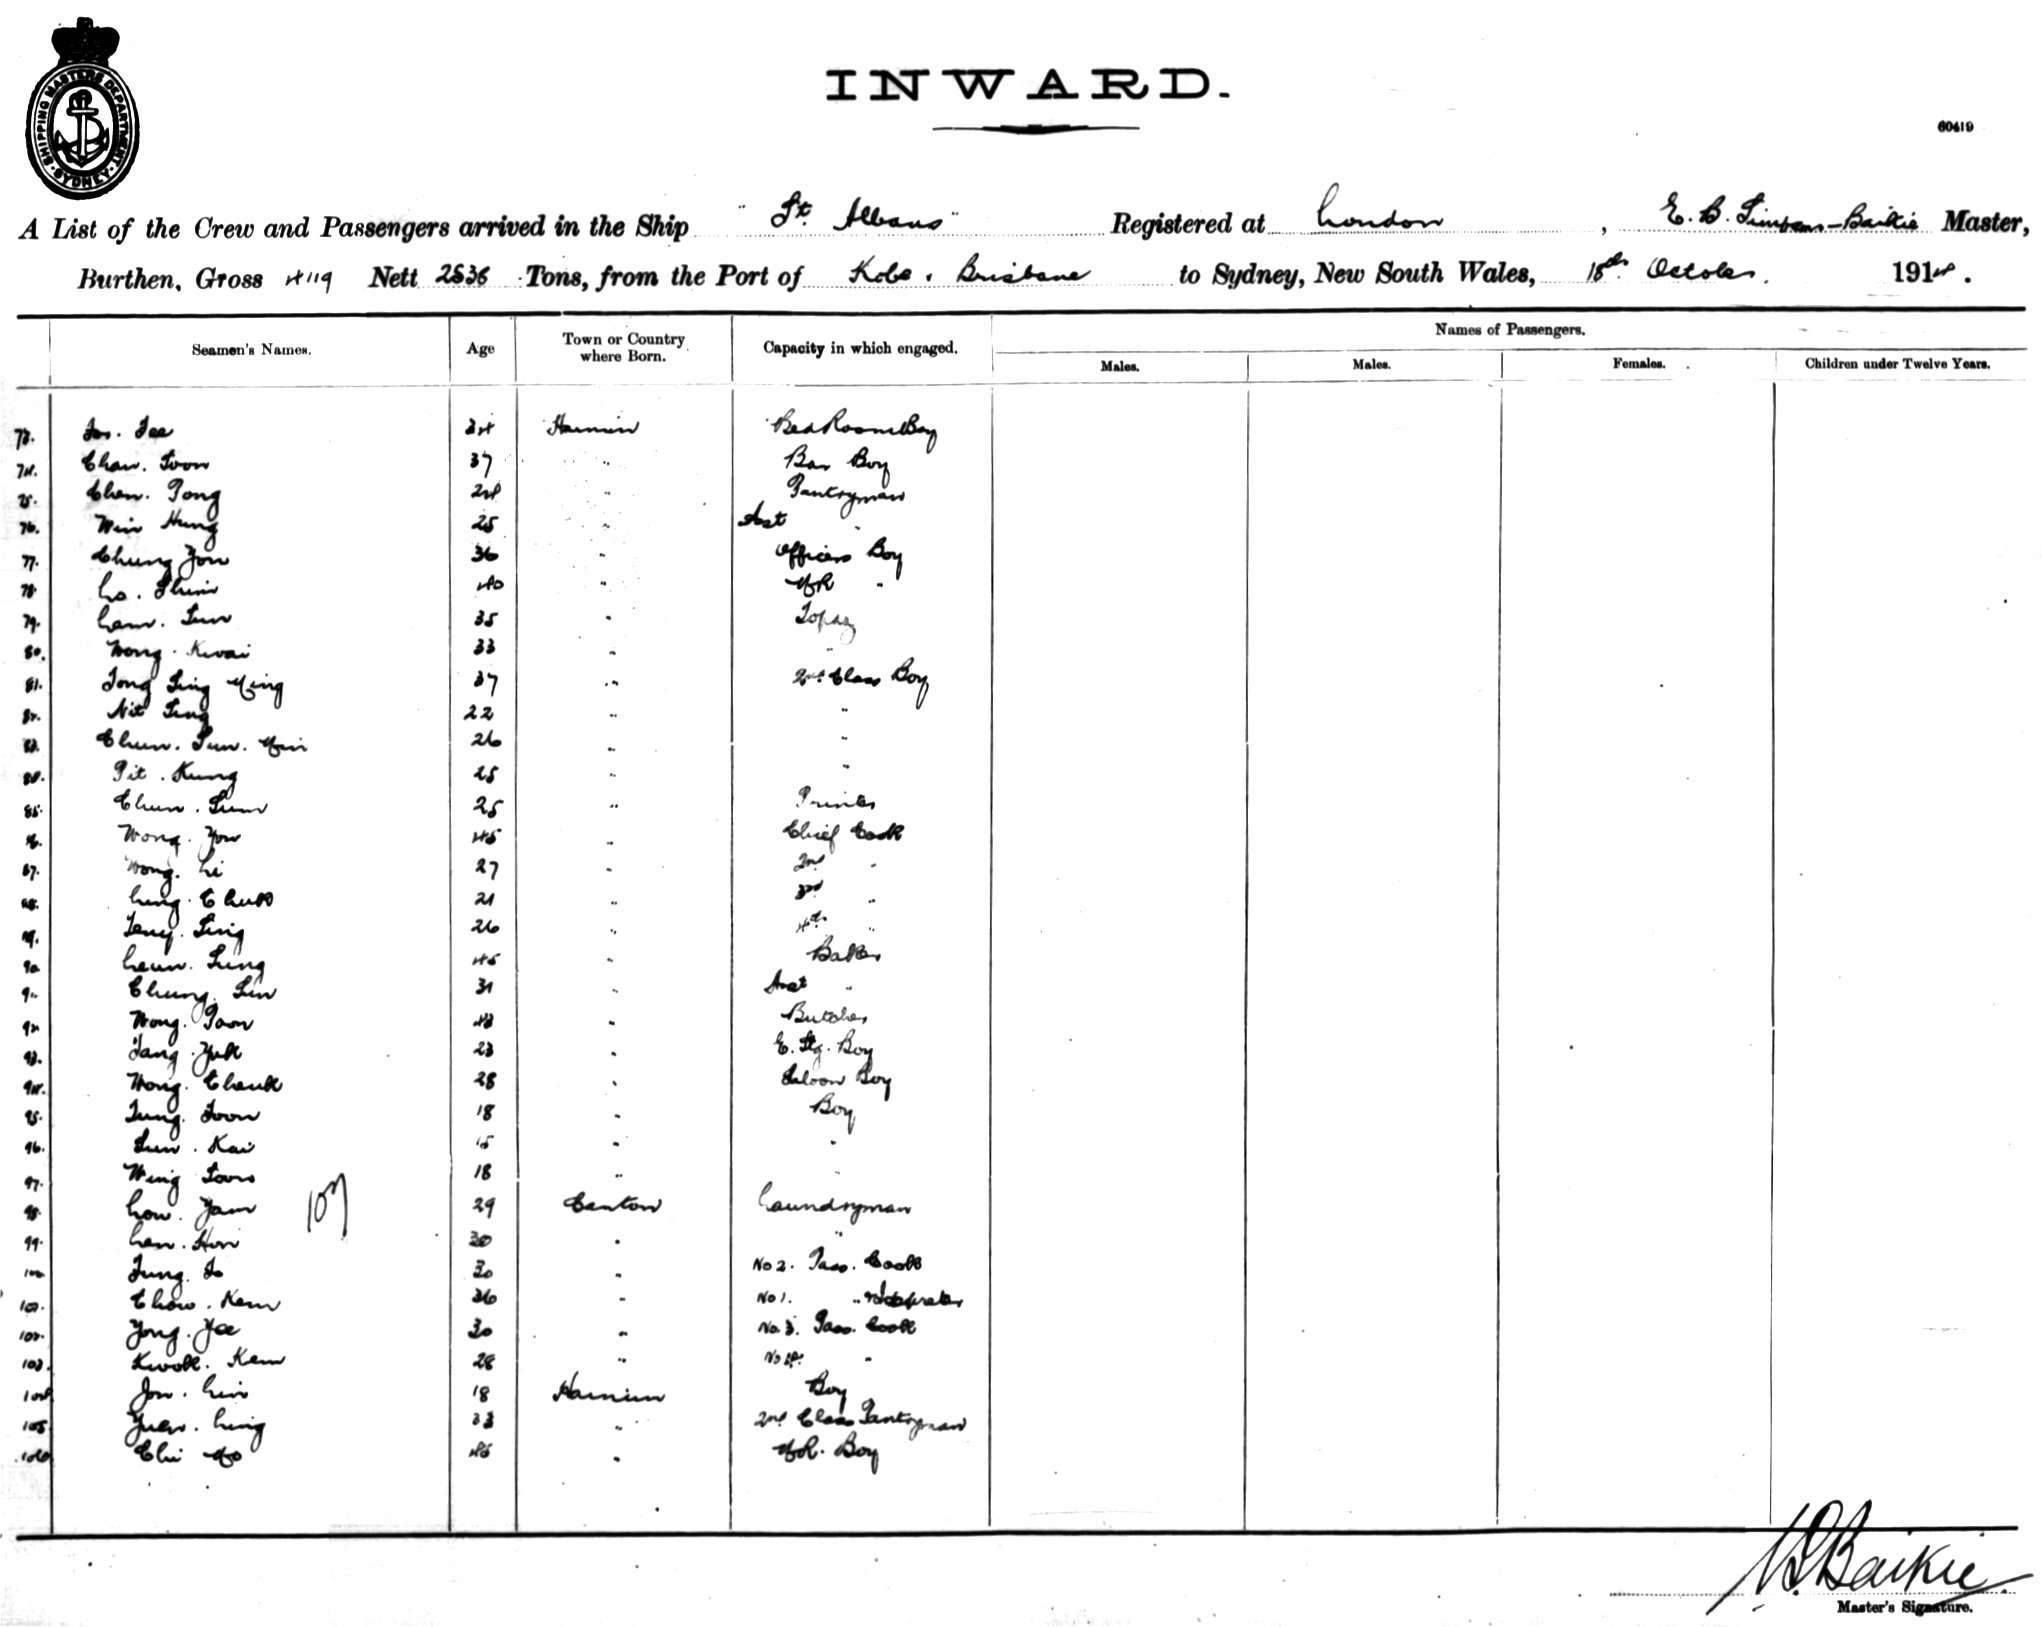 SHIPPING MASTERS DEPARTMENT
SYDNEY
INWARD.
60419
A List of the Crew and Passengers arrived in the Ship "St. Albans" Registered at London, E. B. Simpson-Baikie Master,
Burthen, Gross 4119 Nett 2536 Tons, from the Port of Kobe & Brisbane to Sydney, New South Wales, 15th October 1914.
Seamen's Names. Age Town or Country where Born. Capacity in which engaged. Names of Passengers.
Males. Males. Females. Children under Twelve Years.
73. 24 Hainin Bed Room Boy
74. Chan. Soon 37 " Bar Boy
75. Chen. Pong 24 " Pantryman
76. Win Hung 25 " Asst "
77. Chung You 36 " Officers Boy
78. Lo. Shin 40 " "
79. Lam. Sun 35 " Topaz
80. Wong. Kwai 33 " "
81. Tong Sing Ming 37 " 2nd Class Boy
82. Nit Sing 22 " "
83. Chun. Sun. 26 " "
84. Pit. Kung 25 " "
85. Chun. Sum 25 " Printer
86. Wong. You 45 " Chief Cook
87. Wong. Li 27 " 2nd "
88. Ling. Chuk 21 " 3rd "
89. Sing 26 " 4th "
90 Leun. Sung 45 " Baker
91 Chung. Sin 31 " Asst "
92 Wong. Poon 43 " Butcher
93. Tang. Yuk 23 " E. Stg. Boy
94. Wong. Chauk 28 " Saloon Boy
95. Tung. Soon 18 " Boy
96. Sun. Kai 15 " "
97. Wing Soon 18 " "
98. Low. Yam 107 29 Canton Laundryman
99. Lan. Hon 30 " "
100 Tung. So 30 " No 2. Pass. Cook
101. Chow. Kem 36 " No 1. "
102. Yong. Yee 30 " No. 3. Pass. Cook
103. Kwok. Kem 28 " No 4. "
104 Jon. Lin 18 Hainin Boy
105 Yuen. Ling 33 " 2nd Class Pantryman
106 Chi 45 " Boy
Baikie
Master's Signature.